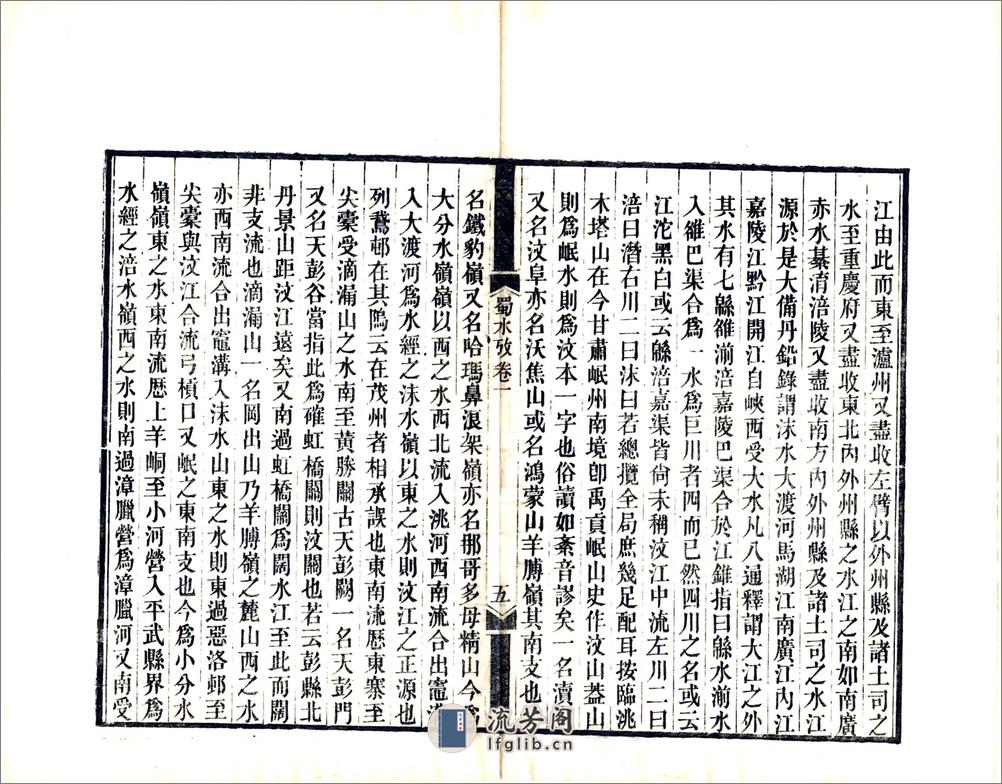 江由此而東至瀘州又盡收左臂以外州縣及諸土司之
水至重慶府又盡收東北內外州縣之水江之南如南廣
赤水綦淯涪陵又盡收南方內外州縣及諸土司之水江
源於是大備丹鉛錄謂沫水大渡河馬湖江南廣江內江
嘉陵江黔江開江自峽西受大水凡八通釋謂大江之外
其水有七緜雒湔涪嘉陵巴渠合於江錐指曰緜水湔水
入雒巴渠合爲一水爲巨川者四而已然四川之名或云
江沱黑白或云緜涪嘉渠皆尙未稱汶江中流左川二曰
涪曰潛右川二曰沫曰若總攬全局庶幾足配耳按臨洮
木塔山在今甘肅岷州南境卽禹貢岷山史作汶山葢山
則爲岷水則爲汶本一字也俗讀如紊音謬矣一名瀆山
又名汶阜亦名沃焦山或名鴻蒙山羊膊嶺其南支也又
蜀水攷卷一
五
名鐵豹嶺又名哈瑪鼻浪架嶺亦名挪哥多母精山今爲
大分水嶺嶺以西之水西北流入洮河西南流合出竈溝
入大渡河爲水經之沫水嶺以東之水則汶江之正源也
列鵞邨在其隝云在茂州者相承誤也東南流歴東寨至
尖橐受滴漏山之水南至黃勝關古天彭闕一名天彭門
又名天彭谷當指此爲確虹橋關則汶關也若云彭縣北
丹景山距汶江遠矣又南過虹橋關爲闊水江至此而闊
非支流也滴漏山一名岡出山乃羊膊嶺之麓山西之水
亦西南流合出竈溝入沫水山東之水則東過惡洛邨至
尖橐與汶江合流弓槓口又岷之東南支也今爲小分水
嶺嶺東之水東南流歴上羊峒至小河營入平武縣界爲
水經之涪水嶺西之水則南過漳臘營爲漳臘河又南受
流芳阁
lfglib.cn